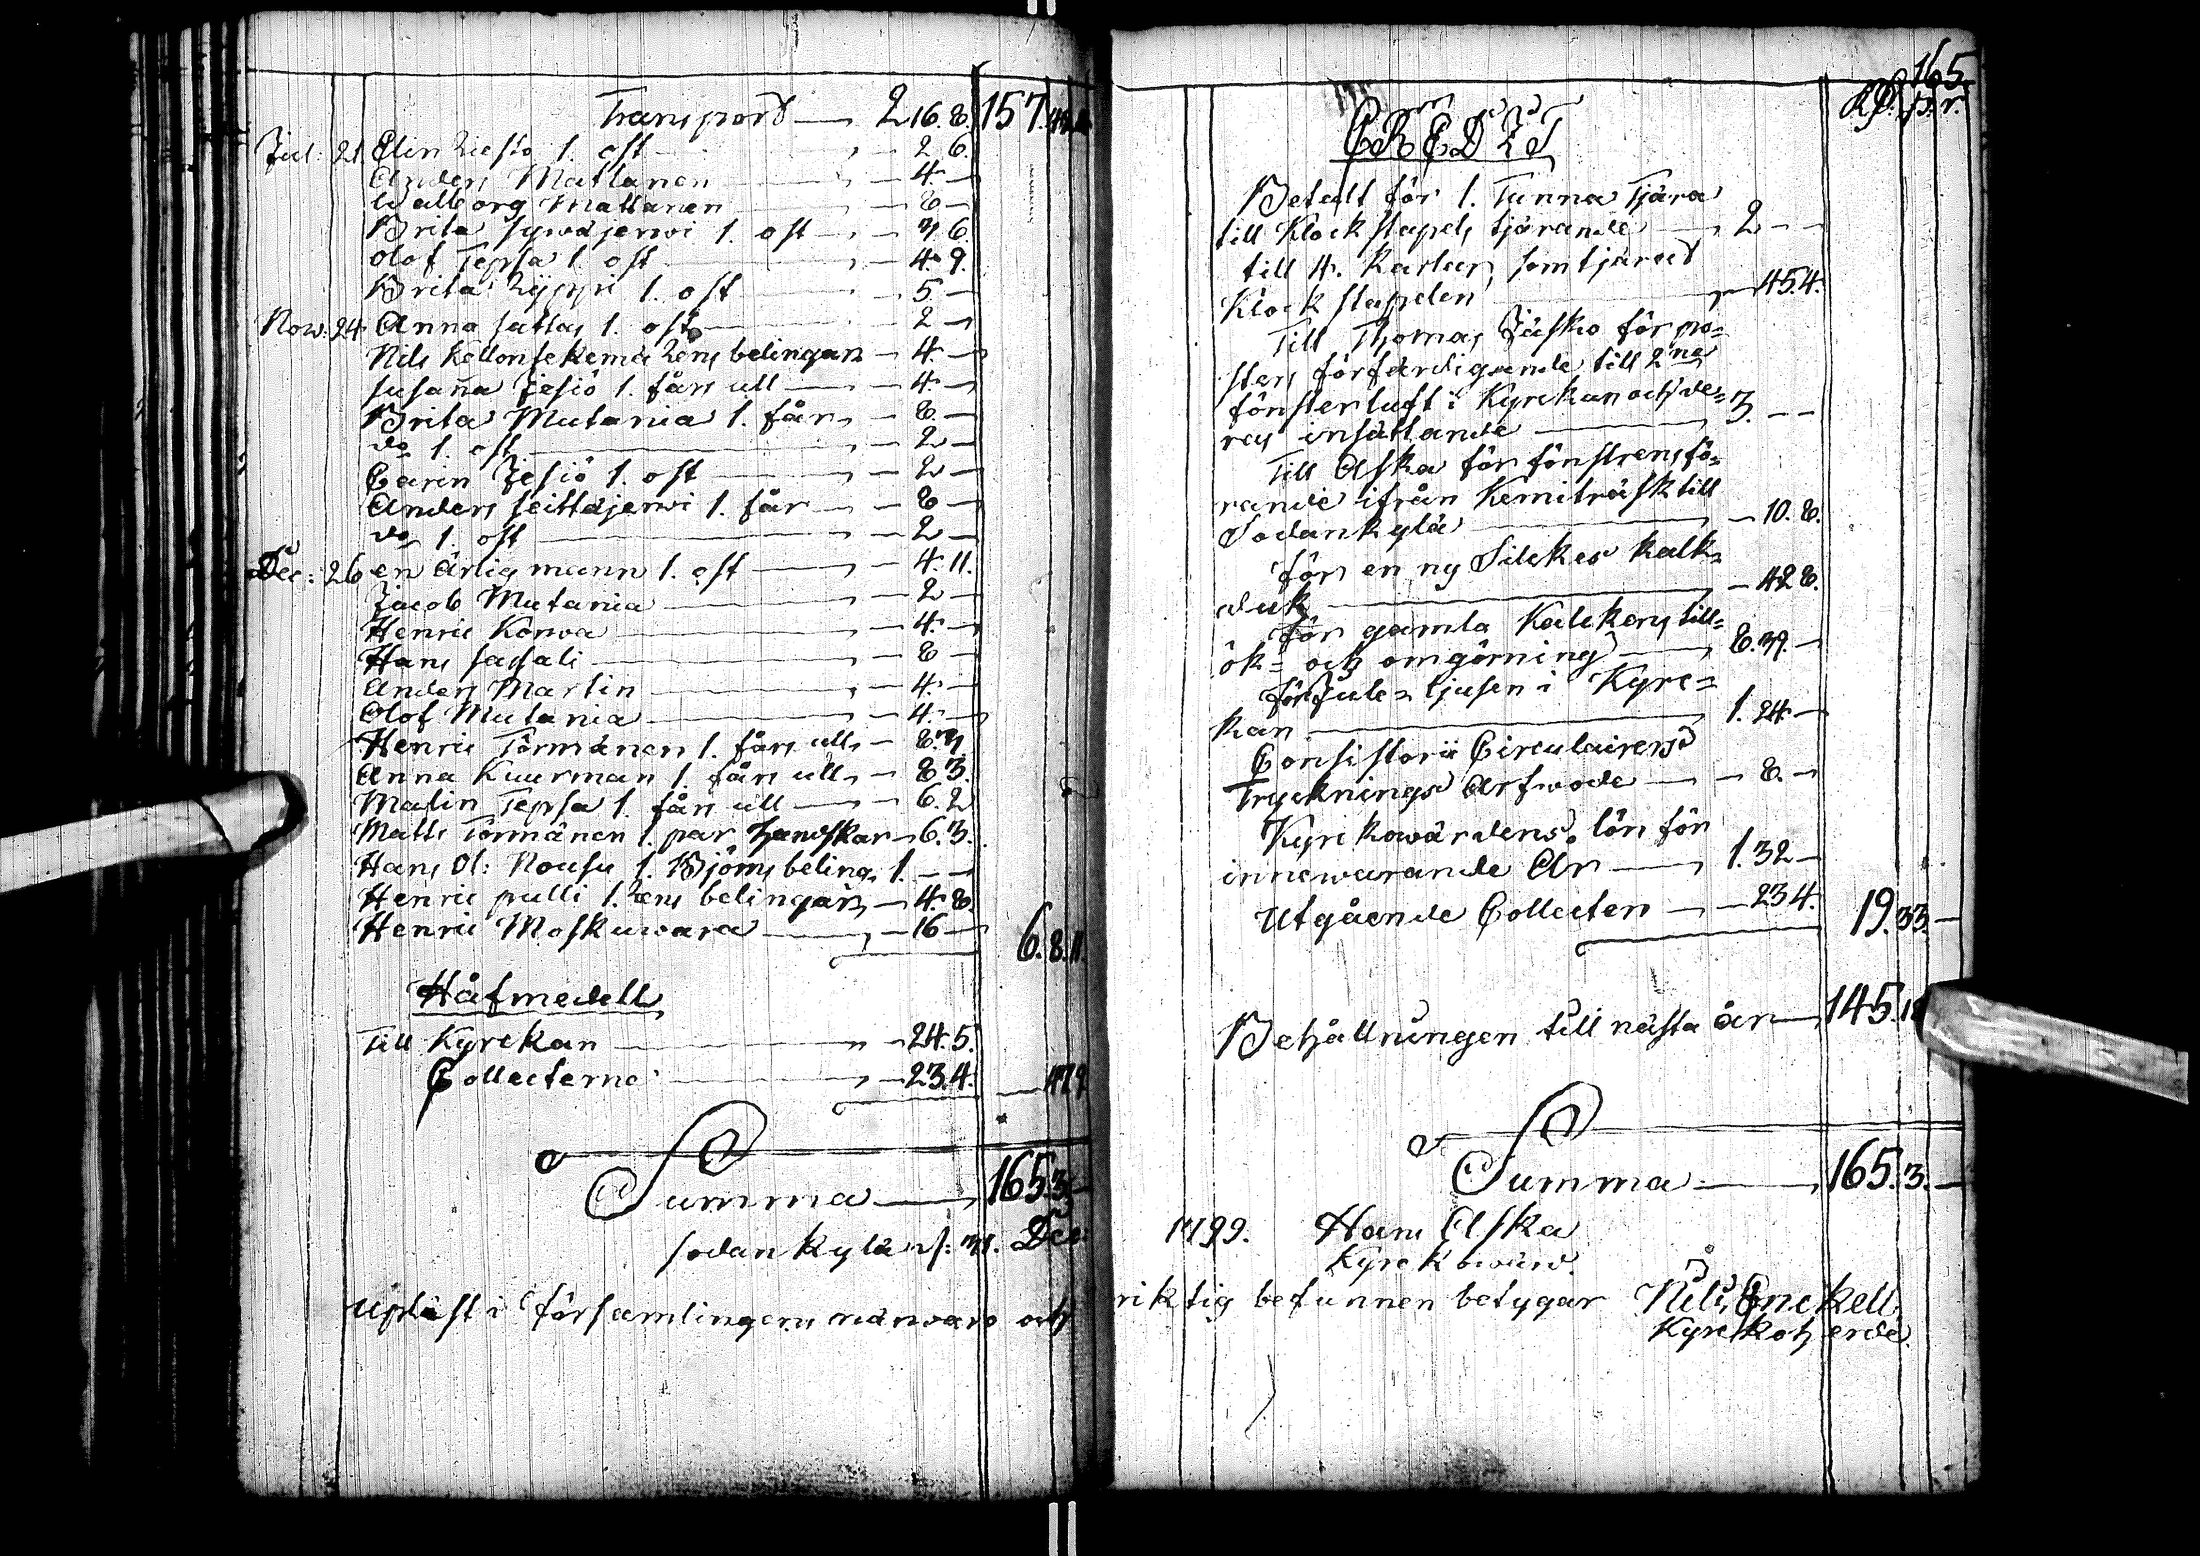 Transport — 2 16. 8. 157.
Jul: 21. Elin Liesto 1. ost — 2 6.
Anders Mattanen — 4. —
Walborg Mattanen — 8 —
Brita sywäjerwi 1. ost — 7. 6.
Olof Tepsa 1. ost — 4. 9.
Brita Lyppi 1. ost — 5 —
Now: 24 Anna sattas 1. ost — 2 —
Nils Kellontekemä Rens belingar — 4. —
Susanna Jesiö 1. fårs ull — 4. —
Brita Mutania 1. får — 8. —
do 1. ost — 2 —
Carin Jesiö 1. ost — 2 —
Anders seittäjerwi 1. får — 8 —
do 1. ost — 2 —
Dec: 26 en Ärlig mann 1. ost — 4. 11.
Jacob Mutania — 2 —
Henric Korwa — 4. —
Hans sassali — 8 —
Anders Martin — 4. —
Olof Mutania — 4. —
Henric Törmänen 1. fårs ull — 8. 7.
Anna Kuurman 1. fårs ull — 8 3.
Malin Tepsa 1. fårs ull — 6. 2
Matts Törmänen 1. par handskar — 6. 3.
Hans Ol: Nousu 1. Björns beling. 1. — —
Henric pulli 1. Rens belingar — 4. 8.
Henric Moskuwara — 16 — 6. 8. 11.
Håfmedell
Till Kyrckan — 24. 5.
Collecterne — 23. 4. — 47 9
Summa — 165. 3. —
Sodankylä d: 31. Dec:
Upläst i församlingens närwaro och
165.
Rd. s. r.
CREDIT
Betalt för 1. Tunna Tjära
till Klockstapels tjärande — 2 — —
till 4. Karlar som tjärad
Klockstapelen — 45. 4.
Till Thomas Jäsko för po=
sters förfärdigande till 2ne
fönsterluft i Kyrckan och de=
ras insättande — 3. — —
Till Aska för fönstrens fö=
rande ifrån Kemiträsk till
Sodankylä — 10. 8.
för en ny Silckes kalk=
duk — 42 8.
för gamla Kalckens till=
ök= och omgörning — 8. 39. —
för Jule=ljusen i Kyrc=
kan — 1. 24 —
Consistorii Circulairers
Trycknings Arfwode — 8. —
Kyrckowärdens lön för
innewarande År — 1. 32 —
Utgående Collecten — 23 4. 19. 33. —
Behållningen till nästa år — 145. 18
Summa — 165. 3. —
1799. Hans Aska
Kyrckowärd.
riktig befunnen betygar Nils Enckell
Kyrckoherde.